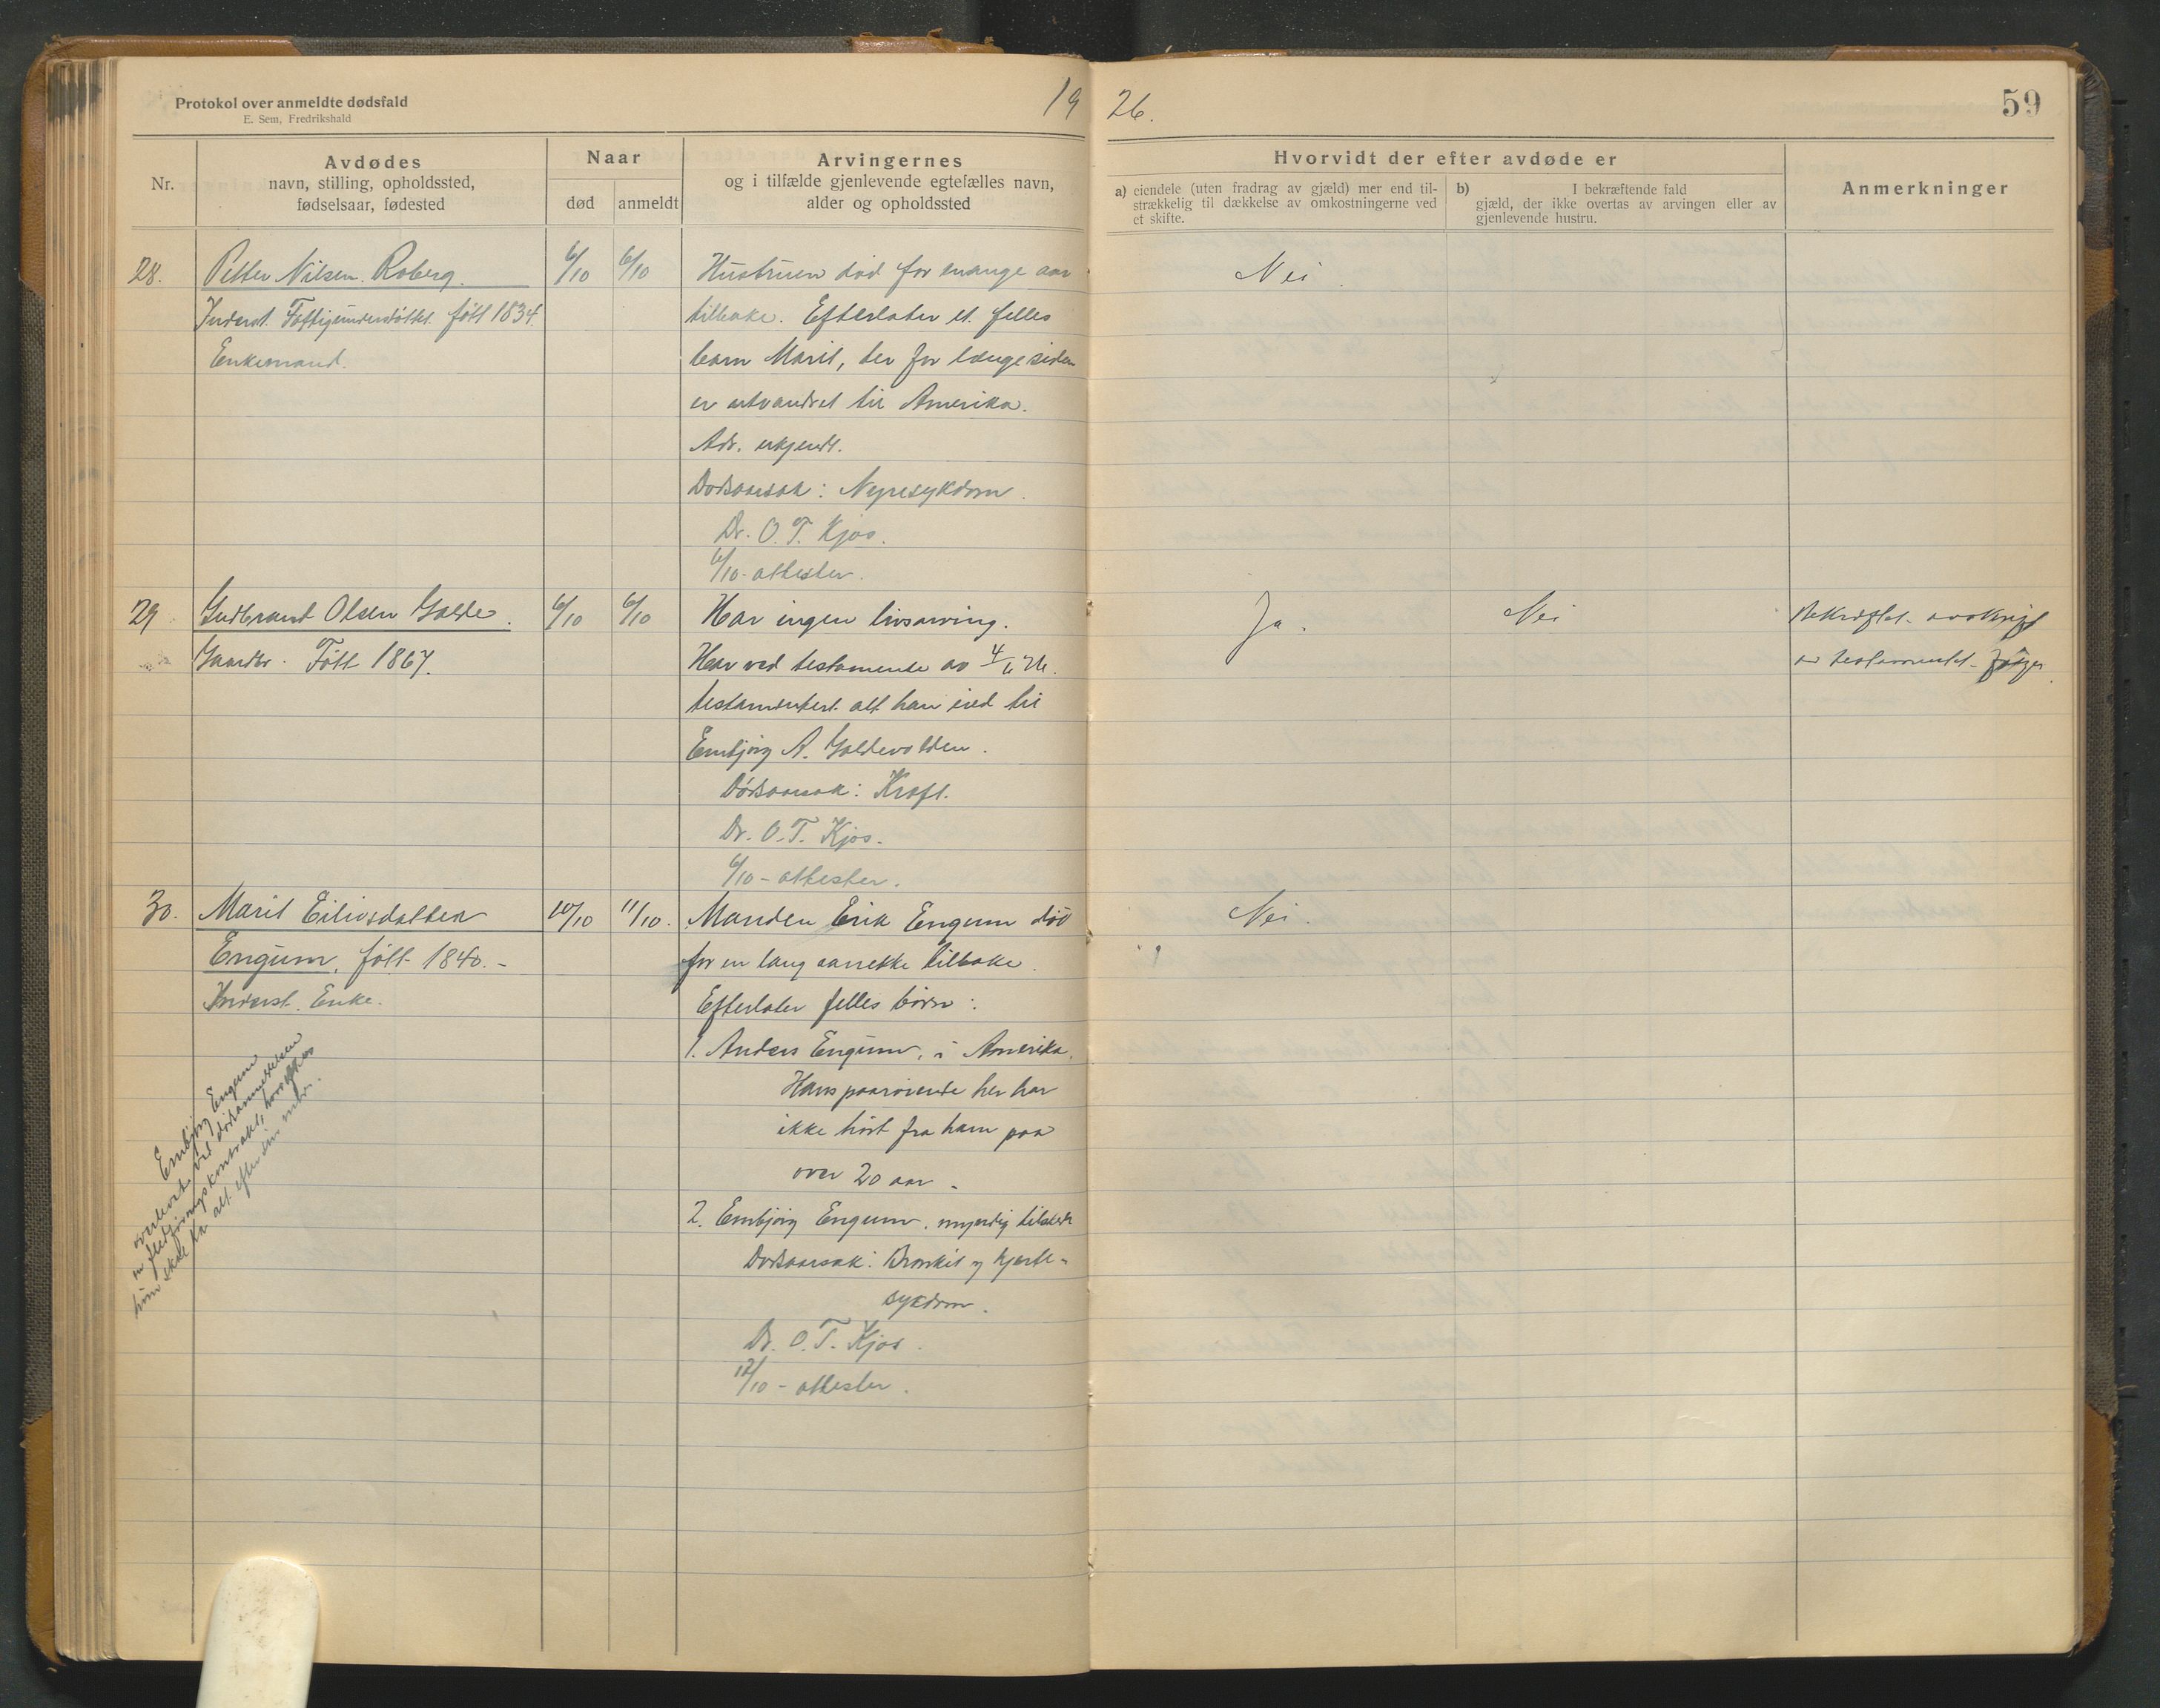 Protokol over anmeldte dødsfald
E. Sem, Fredrikshald
19 26.
59
Nr.
Avdødes
navn, stilling, opholdssted,
fødselsaar, fødested
Naar
død
anmeldt
Arvingernes
og i tilfælde gjenlevende egtefælles navn,
alder og opholdssted
Hvorvidt der efter avdøde er
a) eiendele (uten fradrag av gjæld) mer end til-
strækkelig til dækkelse av omkostningerne ved
et skifte.
b) I bekræftende fald
gjæld, der ikke overtas av arvingen eller av
gjenlevende hustru.
Anmerkninger
28.
Petter Nilsen Roberg.
Inderst. Fattigunderstøttet. født 1834.
Enkemand.
6/10
6/10
Hustruen død for mange aar
tilbake. Efterlater et felles
barn Marit, der for længe siden
er utvandret til Amerika.
Adr. ukjendt.
Dødsaarsak: Nyresykdom.
Dr. O. T. Kjos.
6/10 - attester.
Nei.
29.
Gudbrand Olsen Golde.
Gaardbr. Født 1867.
6/10
6/10
Har ingen livsarving.
Har ved testamente av 4/6 26.
testamentert alt han eied til
Embjørg A. Goldevolden.
Dødsaarsak: Kræft.
Dr. O. T. Kjos.
6/10 - attester.
Ja.
Nei
Bekræftet avskrift
av testamentet følger.
30.
Marit Eilivsdatter
Engum, født 1840. -
Inderst. Enke.
10/10
11/10.
Manden Erik Engum død
for en lang aarrekke tilbake.
Efterlater felles børn:
1. Anders Engum, i Amerika.
Hans paarørende her har
ikke hørt fra ham paa
over 20 aar.
2. Embjørg Engum. myndig tilstede
Dødsaarsak: Bronkit og hjerte-
sykdom.
Dr. O. T. Kjos.
12/10 - attester.
Nei.
Embjørg Engum
overlevert ved dødsanmeldelsen
en fledføringskontrakt, hvorefter
hun skal ha alt efter sin mor.